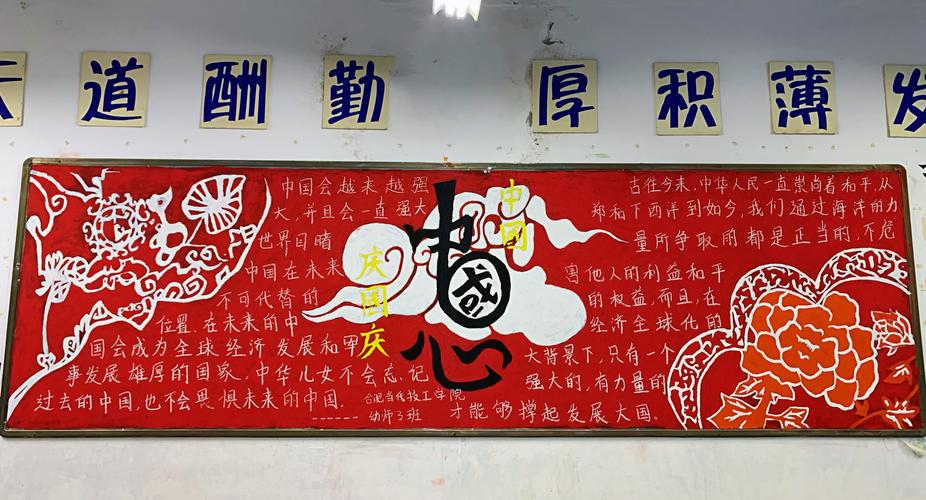 道 酬 勤 厚 积 薄 发
中国会越来越强
大，并且会一直强大
世界目睹
中国在未来
不可代替的
位置，在未来的中
国会成为全球经济发展和军
事发展雄厚的国家，中华儿女不会忘记
过去的中国，也不会畏惧未来的中国。
庆国庆
中国心
中国
合肥当代技工学院
幼师3班
古往今来，中华人民一直崇尚着和平，从
郑和下西洋到如今，我们通过海洋的力
量所争取的都是正当的，不危
害他人的利益和平
的权益，而且，在
经济全球化的
大背景下，只有一个
强大的，有力量的
才能够撑起发展大国。